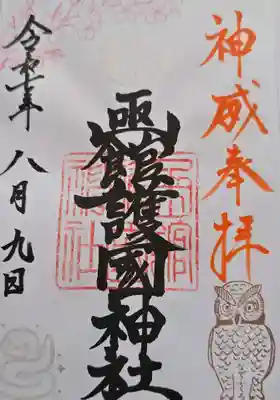 神威奉拝
函館護國神社
令和七年八月九日